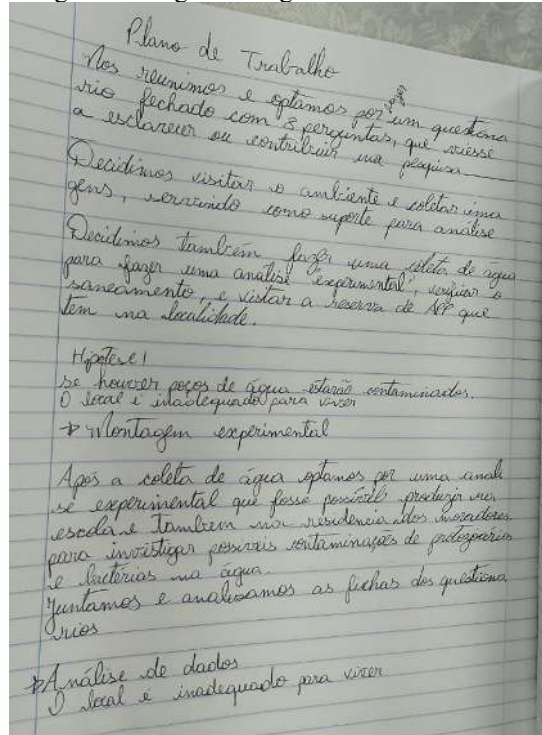 Plano de Trabalho
Nos reunimos e optamos por fazer um questiona
rio fechado com 8 perguntas, que viesse
a esclarecer ou contribuir na pesquisa
Decidimos visitar o ambiente e coletar ima
gens, servindo como suporte para análise
Decidimos também fazer uma coleta de água
para fazer uma análise experimental, verificar o
saneamento, e visitar a reserva de APP que
tem na localidade.
Hipótese!
se houver poços de água estarão contaminados.
O local é inadequado para viver
Montagem experimental
Após a coleta de água optamos por uma anali
se experimental que fosse possível produzir na
escola e tambem na residencia dos moradores
para investigar possiveis contaminações de protozoarios
e bactérias na água.
Juntamos e analisamos as fichas dos questiona
rios
Análise de dados
O local é inadequado para viver